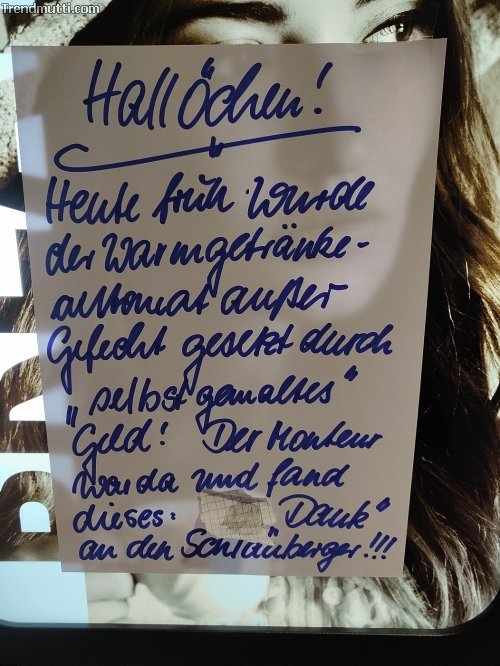 Trendmutti.com
HallÖchen!
Heute früh wurde
der Warmgetränke-
automat außer
Gefecht gesetzt durch
„selbst gemaltes"
Geld! Der Monteur
war da und fand
dieses: Dank"
an den Schlauberger!!!